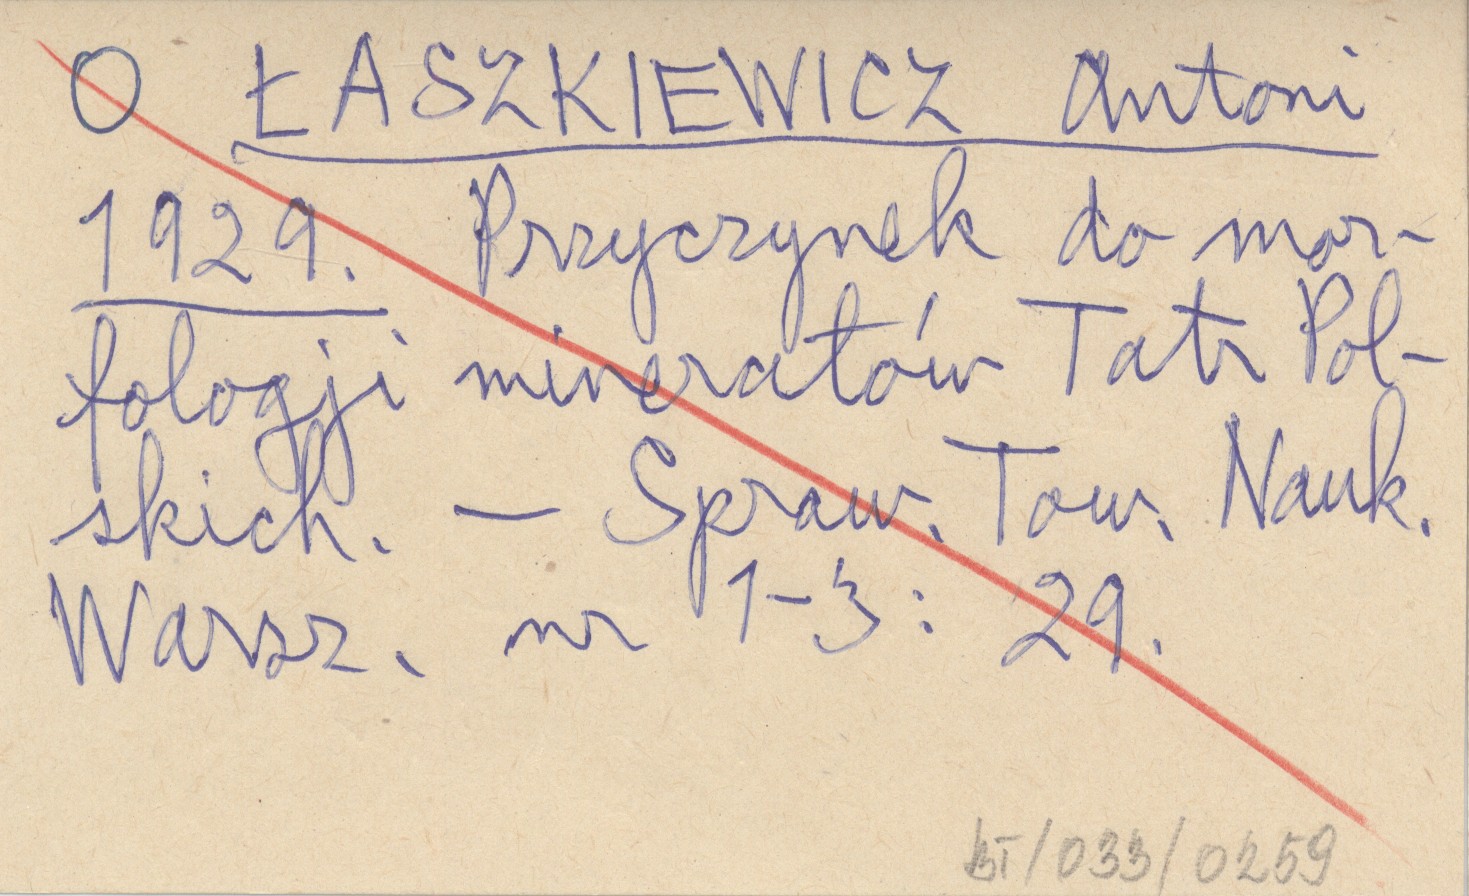 O ŁASZKIEWICZ Antoni
1929. Przyczynek do mor-
fologji minerałów Tatr Pol-
skich. — Spraw. Tow. Nauk.
Warsz. nr 1-3: 29.
BT/033/0259